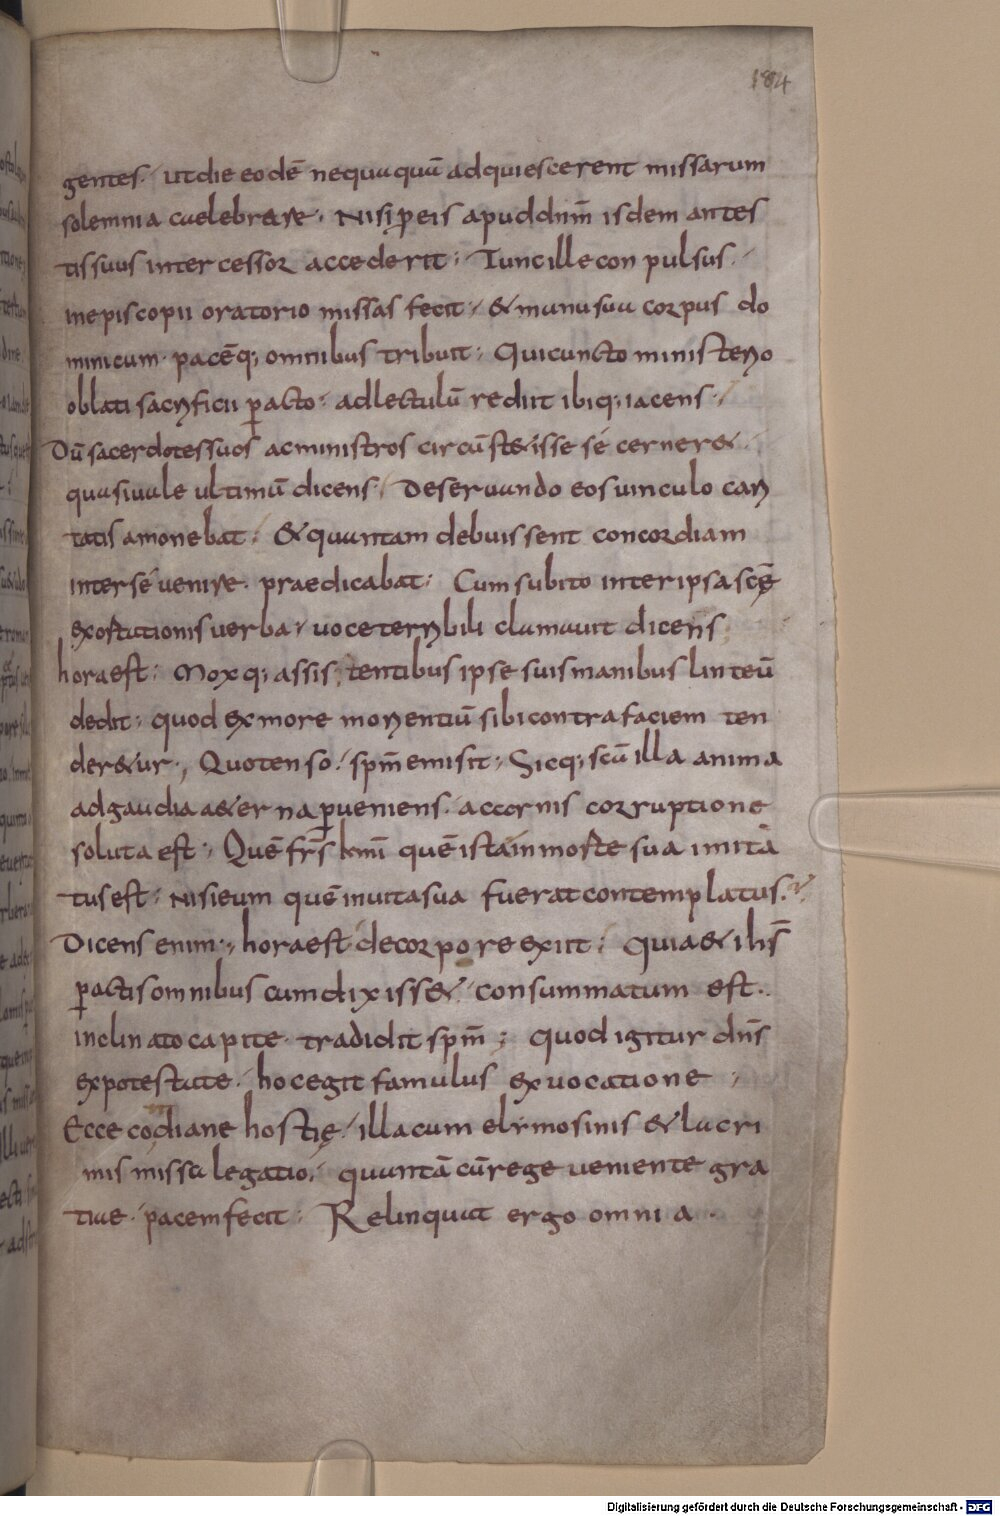 184
gentes. ut die eodē nequaquā adquiescerent missarum
solemnia caelebrare. Nisi p eis apud dnm̄ isdem antes
tis suus intercessor accederit; Tunc ille conpulsus.
in episcopii oratorio missas fecit. & manu sua corpus do
minicum. pacēq; omnibus tribuit; Qui cuncto ministerio
oblati sacrificii ꝑacto; ad lectulū rediit ibiq; iacens.
Dū sacerdotes suos ac ministros circūstetisse se cerner&.
quasi uale ultimū dicens. De seruando eos uinculo cari
tatis amonebat. & quantam debuissent concordiam
inter se uenire. praedicabat; Cum subito inter ipsa scę̄
exortationis uerba. uoce terribili clamauit dicens
hora est; Moxq; assistentibus ipse suis manibus linteū
dedit; quod ex more morientiū sibi contra faciem ten
der&ur; Quo tenso. spm̄ emisit; Sicq; scā illa anima
ad gaudia a&erna ꝑueniens. a carnis corruptione
soluta est; Quē frs̄ kmī quē ista in morte sua imita
tus est; Nisi eum quē in uita sua fuerat contemplatus.
Dicens enim; hora est de corpore exiit; Quia & ihs̄
ꝑactis omnibus cum dixiss&. consummatum est.
inclinato capite. tradidit spm̄; Quod igitur dns̄
ex potestate. hoc egit famulus ex uocatione;
Ecce codiane hostię. illa cum elimosinis & lacri
mis missa legatio. quantā cū rege ueniente gra
tiae. pacem fecit; Relinquit ergo omnia.
Digitalisierung gefördert durch die Deutsche Forschungsgemeinschaft - DFG